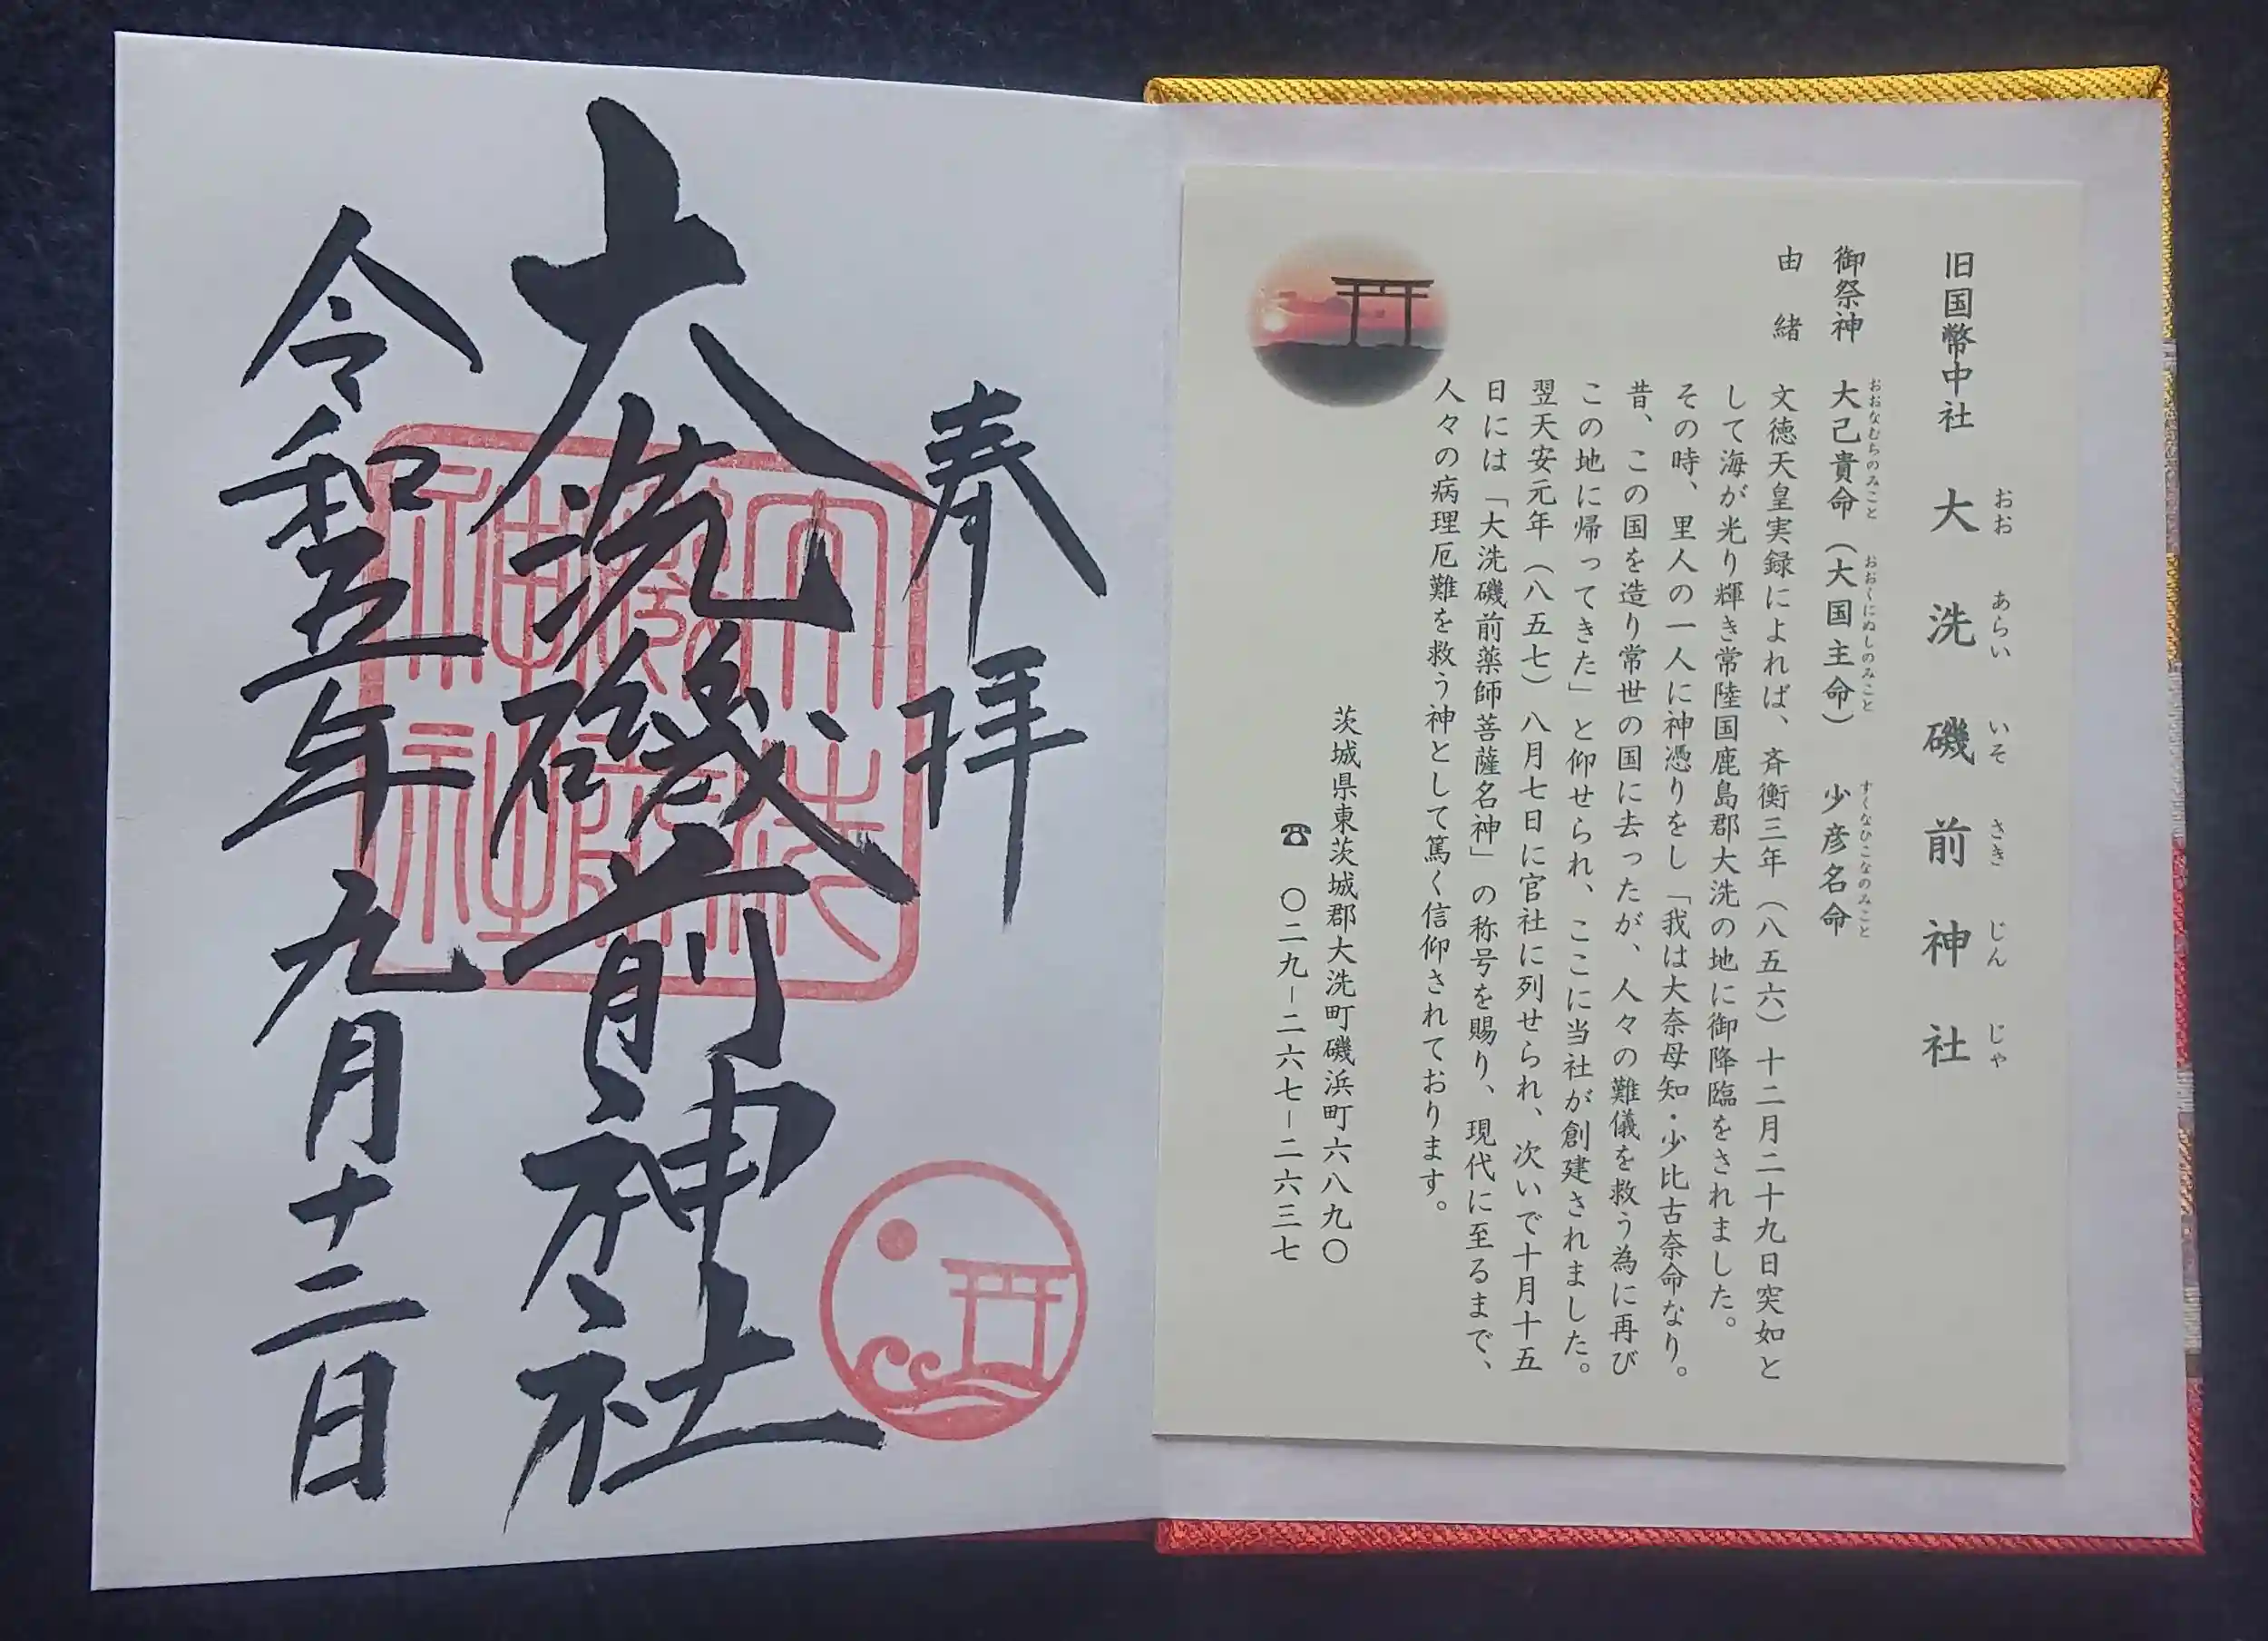 旧国幣中社 大洗磯前神社
おお あらい いそ さき じん じゃ
御祭神 大己貴命（大国主命） 少彦名命
おおなむちのみこと おおくにぬしのみこと すくなひこなのみこと
由緒
文徳天皇実録によれば、斉衡三年（八五六）十二月二十九日突如と
して海が光り輝き常陸国鹿島郡大洗の地に御降臨をされました。
その時、里人の一人に神憑りをし「我は大奈母知・少比古奈命なり。
昔、この国を造り常世の国に去ったが、人々の難儀を救う為に再び
この地に帰ってきた」と仰せられ、ここに当社が創建されました。
翌天安元年（八五七）八月七日に官社に列せられ、次いで十月十五
日には「大洗磯前薬師菩薩名神」の称号を賜り、現代に至るまで、
人々の病理厄難を救う神として篤く信仰されております。
茨城県東茨城郡大洗町磯浜町六八九〇
☎ 〇二九－二六七－二六三七
奉拝
大洗磯前神社
令和五年九月十二日